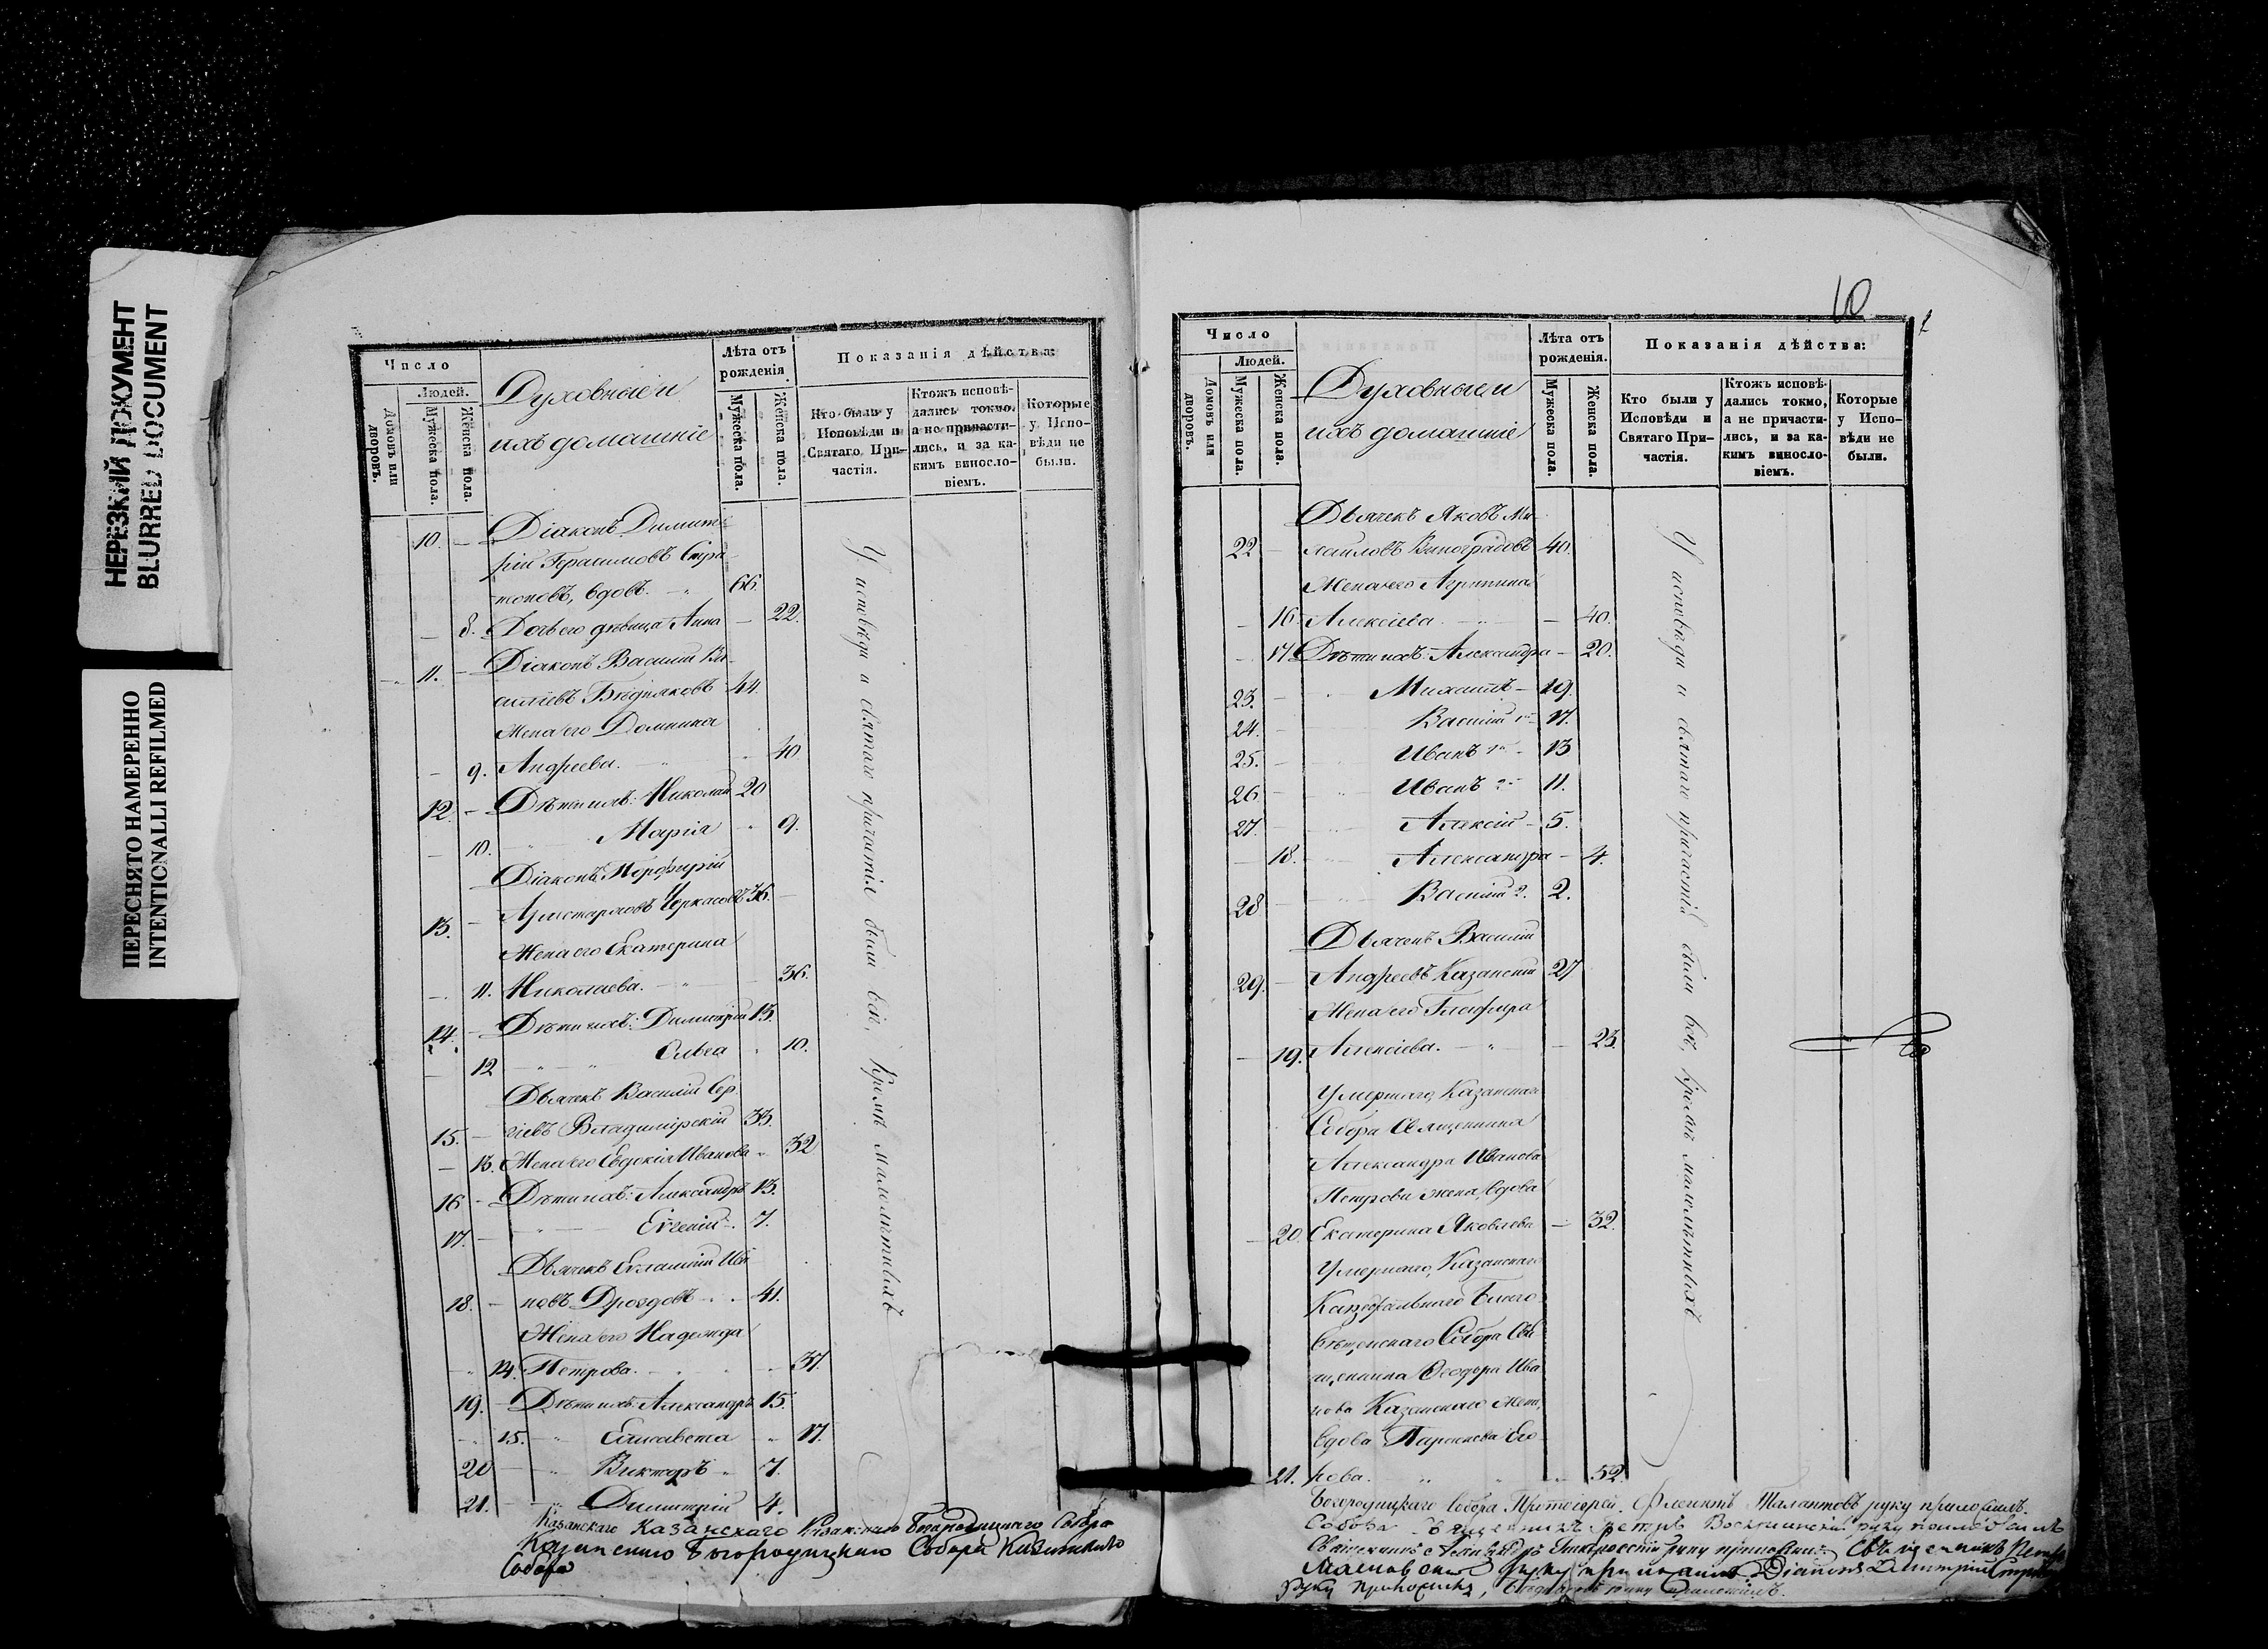 НЕРЕЗКИЙ ДОКУМЕНТ
BLURRED DOCUMENT
ПЕРЕСНЯТО НАМЕРЕННО
INTENTICNALLI REFILMED
Число
Людей.
Домовъ или дворовъ.
Мужеска пола.
Женска пола.
Духовные и
ихъ домашніе
Лѣта отъ рожденія.
Мужеска пола.
Женска пола.
Показанія дѣйства:
Кто были у Исповѣди и Святаго Причастія.
Ктожъ исповѣдались токмо, а не причастились, и за какимъ винословіемъ.
Которые у Исповѣди не были.
10. — Діаконъ Димит-
рій Герасимовъ Стра-
тоновъ, вдовъ. 66.
8. Дочь его дѣвица Анна — 22.
11. — Діаконъ Василій Ва-
силіевъ Бѣдняковъ 44.
Жена его Домника
9. Андреева. 40
12. — Дѣти ихъ: Николай 20
10. Марія 9.
Діаконъ Порфирій
13. — Аристарховъ Черкасовъ 36.
Жена его Екатерина
11. Николаева. 36.
14. — Дѣти ихъ: Димитрій 13.
12 Ольга 10.
Дьячекъ Василій Сер-
15. — гіевъ Владимірскій 33.
13. Жена его Евдокія Иванова 32
16 — Дѣти ихъ: Александръ 13.
17. — Евгеній 7.
Дьячекъ Евлампій Ива-
18. — новъ Дроздовъ 41.
Жена его Надежда
14. Петрова. 37.
19. — Дѣти ихъ: Александръ 15.
15. Елисавета 17.
20 — Викторъ 7.
21. — Димитрій 4.
У исповѣди и святаго причастія были всѣ, кромѣ малолѣтныхъ
Казанскаго Казанскаго Казанскаго Богородицкаго Собора
Казанскаго Богородицкаго Собора Казанскаго
Собора
10
Число
Людей.
Домовъ или дворовъ.
Мужеска пола.
Женска пола.
Духовные и
ихъ домашніе
Лѣта отъ рожденія.
Мужеска пола.
Женска пола.
Показанія дѣйства:
Кто были у Исповѣди и Святаго Причастія.
Ктожъ исповѣдались токмо, а не причастились, и за какимъ винословіемъ.
Которые у Исповѣди не были.
Дьячекъ Яковъ Ми-
22 — хаиловъ Виноградовъ 40.
Жена его Агрипина
16 Алексіева. — 40.
17 Дѣти ихъ: Александра — 20.
23. — Михаилъ — 19.
24. — Василій 1й 17.
25. — Иванъ 1й 13
26 — Иванъ 2й 11.
27. Алексій — 5.
18. Александра — 4.
28 — Василій 2. 2.
Дьячекъ Василій
29. — Андреевъ Казанскій 27
Жена его Глафира
19. Алексіева. — 23.
Умершаго, Казанскаго
Собора Священника
Александра Иванова
Петрова жена, вдова
20. Екатерина Яковлева — 32.
Умершаго, Казанскаго
Каѳедральнаго Благо-
вѣщенскаго Собора Свя-
щенника Ѳеодора Ива-
нова Казанскаго жена,
вдова Параскева
21. кова. 52.
У исповѣди и святаго причастія были всѣ, кромѣ малолѣтныхъ
Богородицкаго Собора Протоіерей Талантовъ руку приложилъ.
Собора Священникъ Петръ Воскресенскій руку приложилъ
Священникъ руку приложилъ Священникъ
руку приложилъ Діаконъ Димитрій
руку приложилъ, руку приложилъ.